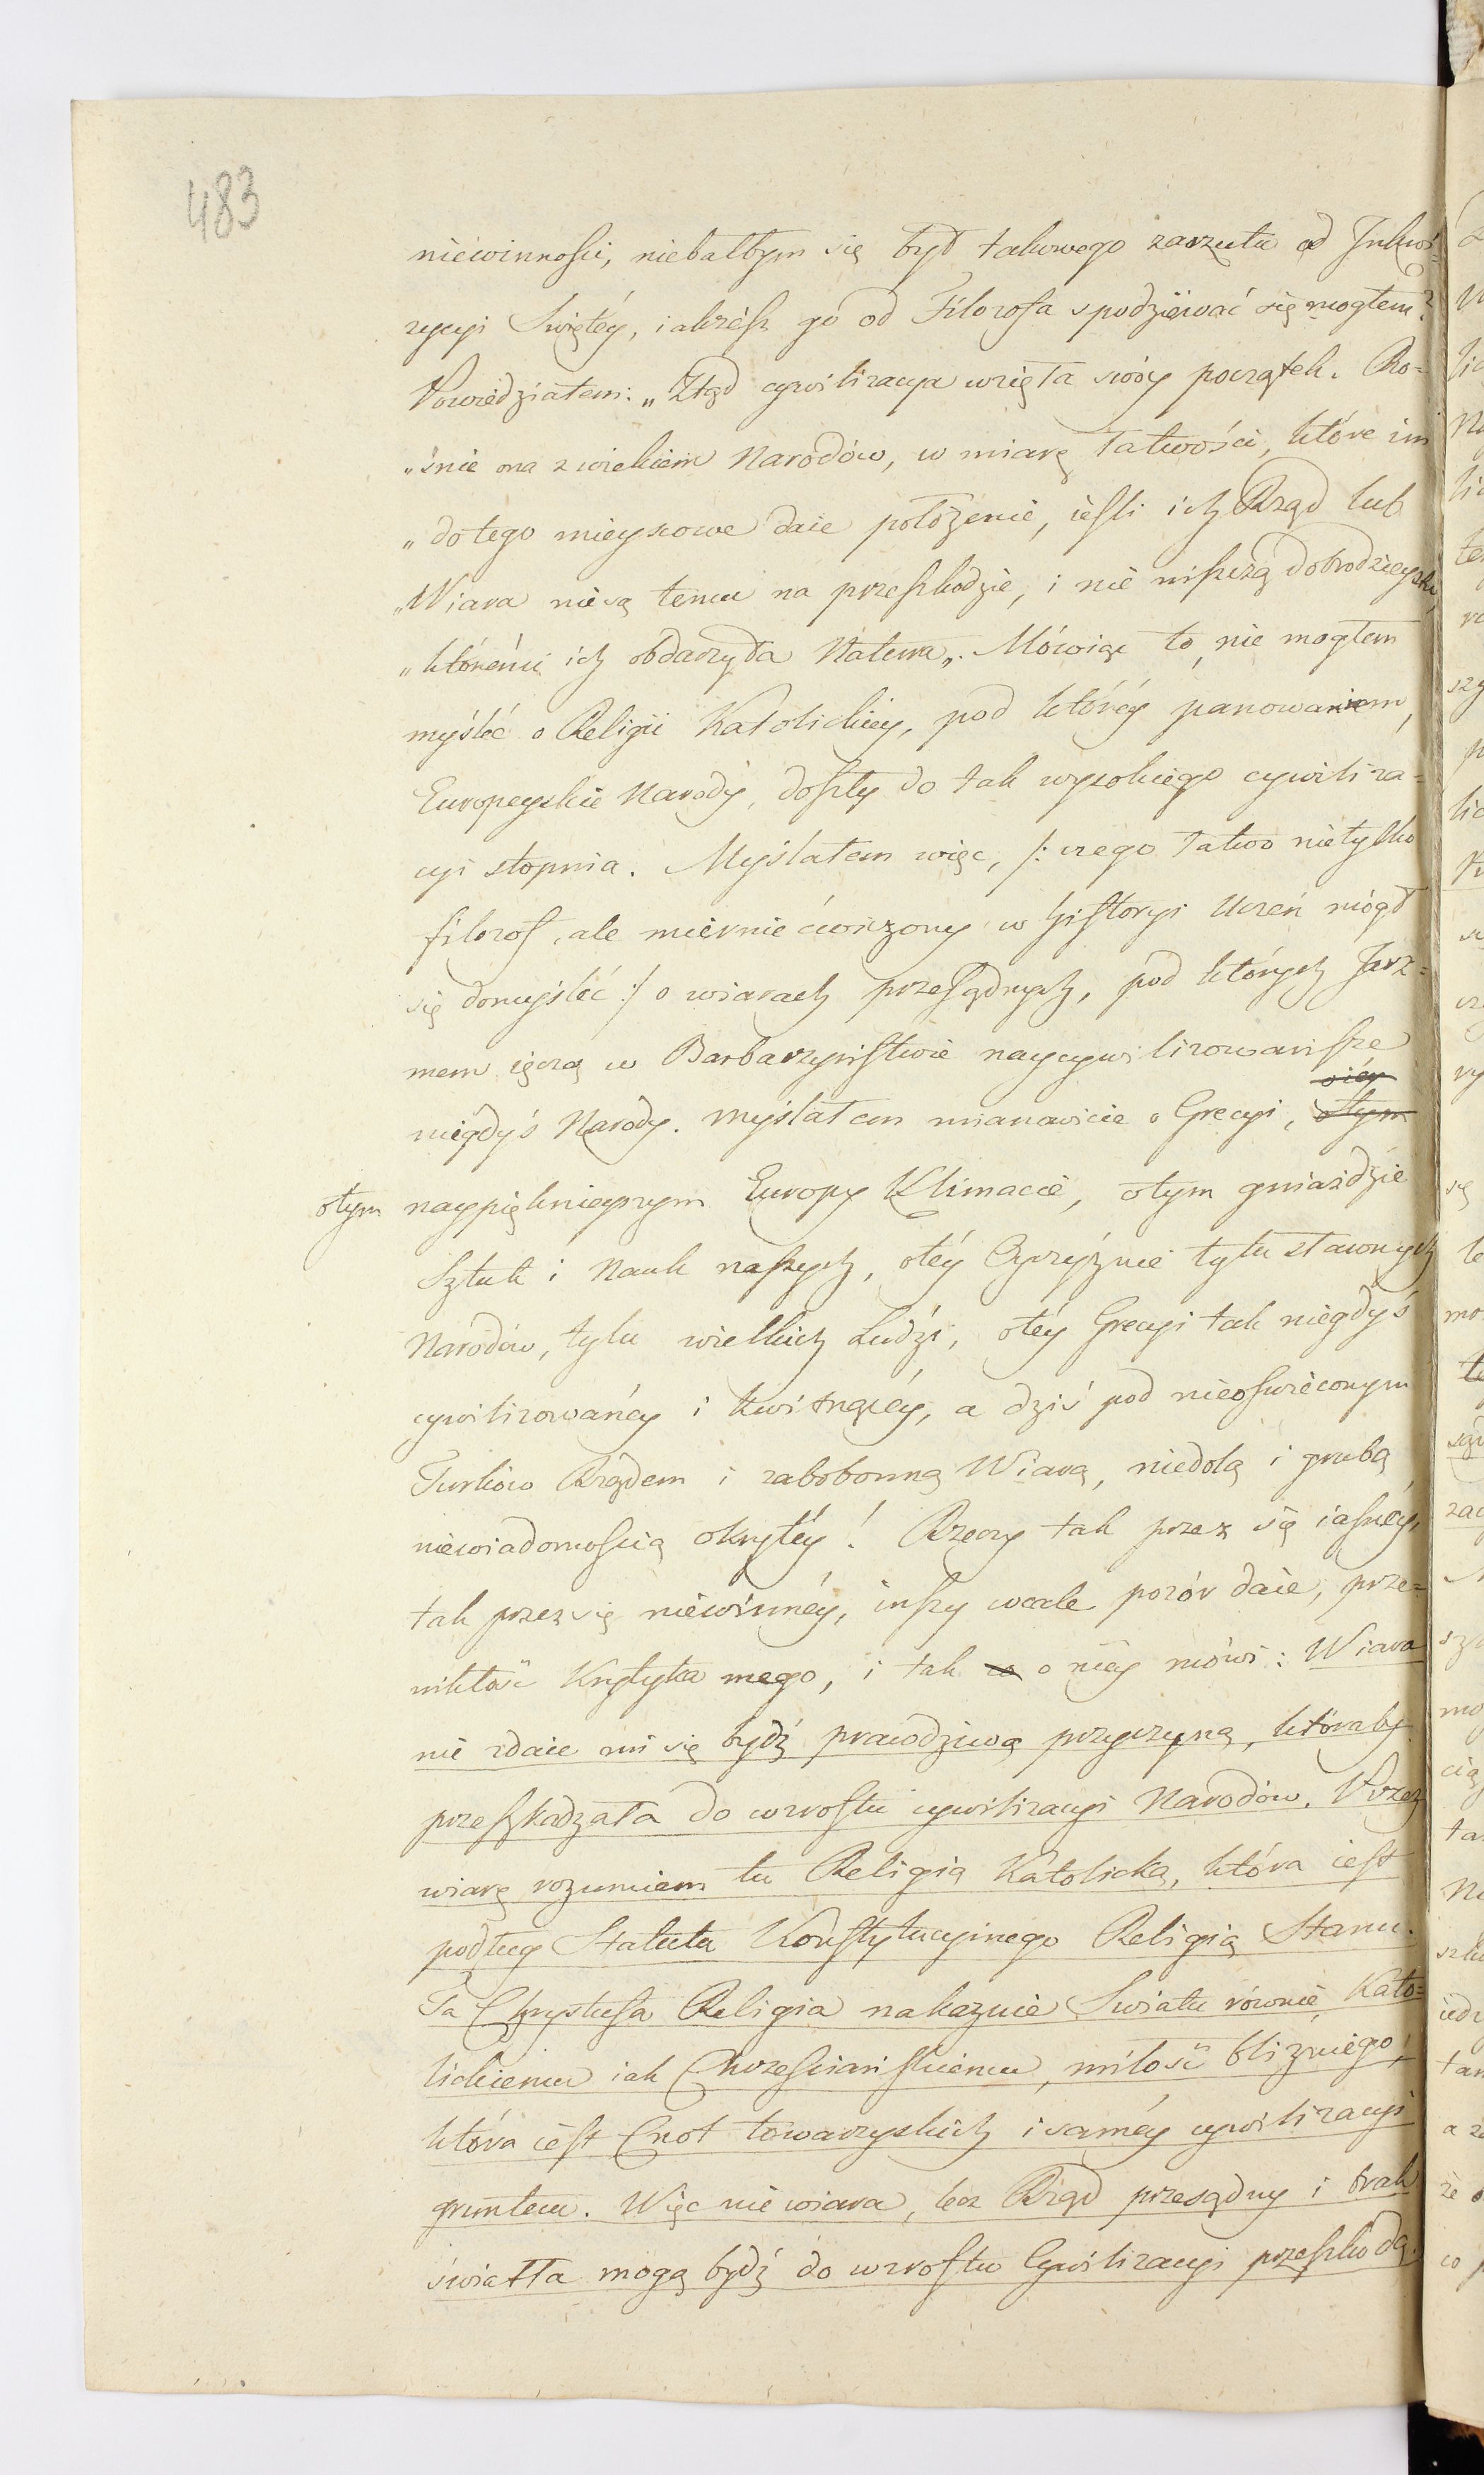 483
niéwinności, niebałbym się był takowego zarzutu od Inkwi=
zycyi Swiętéy, iakżéśz go od Filozofa spodziéwać się mogłem?
Powiedziałem: „Ztąd cywilizacya wzięła swóy początek. Ro=
„śnie ona z wiekiem Narodów, w miarę łatwości, które im
„do tego mieyscowe daie położenie, ieśli ich Rząd lub
„Wiara niesą temu na przeszkodzie, i nie niszczą dobrodzieystw,
„któremi ich obdarzyła Natura„. Mówiąc to, nie mogłem
myśléć o Religii Katolickiey, pod któréy panowaniem,
Europeyskie Narody, doszły do tak wysokiego cywiliza=
cyi stopnia. Myślałem więc, /: czego łatwo nietylko
filozof, ale miernie ćwiczony w historyi Uczeń mógł
się domyśléć :/ o wiarach przesądnych, pod których Jarz=
mem ięczą w Barbarzyństwie naycywilizowańsze
niegdyś Narody. myślałem mianowicie o Grecyi,
otym naypięknieyszym Europy Klimacie, otym gniaździe
Sztuk i Nauk naszych, otéy Oyczyźnie tylu sławnych
Narodów, tylu wielkich Ludzi, otéy Grecyi tak niegdyś
cywilizowanéy i kwitnącéy, a dziś pod nieoświeconym
Turków Rządem i zabobonną Wiarą, niedolą i grubą
niewiadomością okrytéy! Rzeczy tak przez się iasnéy,
tak przez się niéwinnéy, inszy wcale pozór daie, prze=
nikłość Krytyka mego, i tak o niéy mówi: Wiara
nie zdaie mi się bydź prawdziwą przyczyną, któraby
przeszkadzała do wzrostu cywilizacyi Narodów. Przez
wiarę rozumiem tu Religią Katolicką, która iest
podług Statutu Konstytucyinego Religią Stanu.
Ta Chrystusa Religia nakazuie Swiatu równie Kato=
lickiemu iak Chrześciańskiemu, miłość bliźniego,
która iest Cnot towarzyskich i saméy cywilizacyi
gruntem. Więc nie wiara, lecz Rząd przesądny i brak
światła mogą bydź do wzrostu Cywilizacyi przeszkodą.